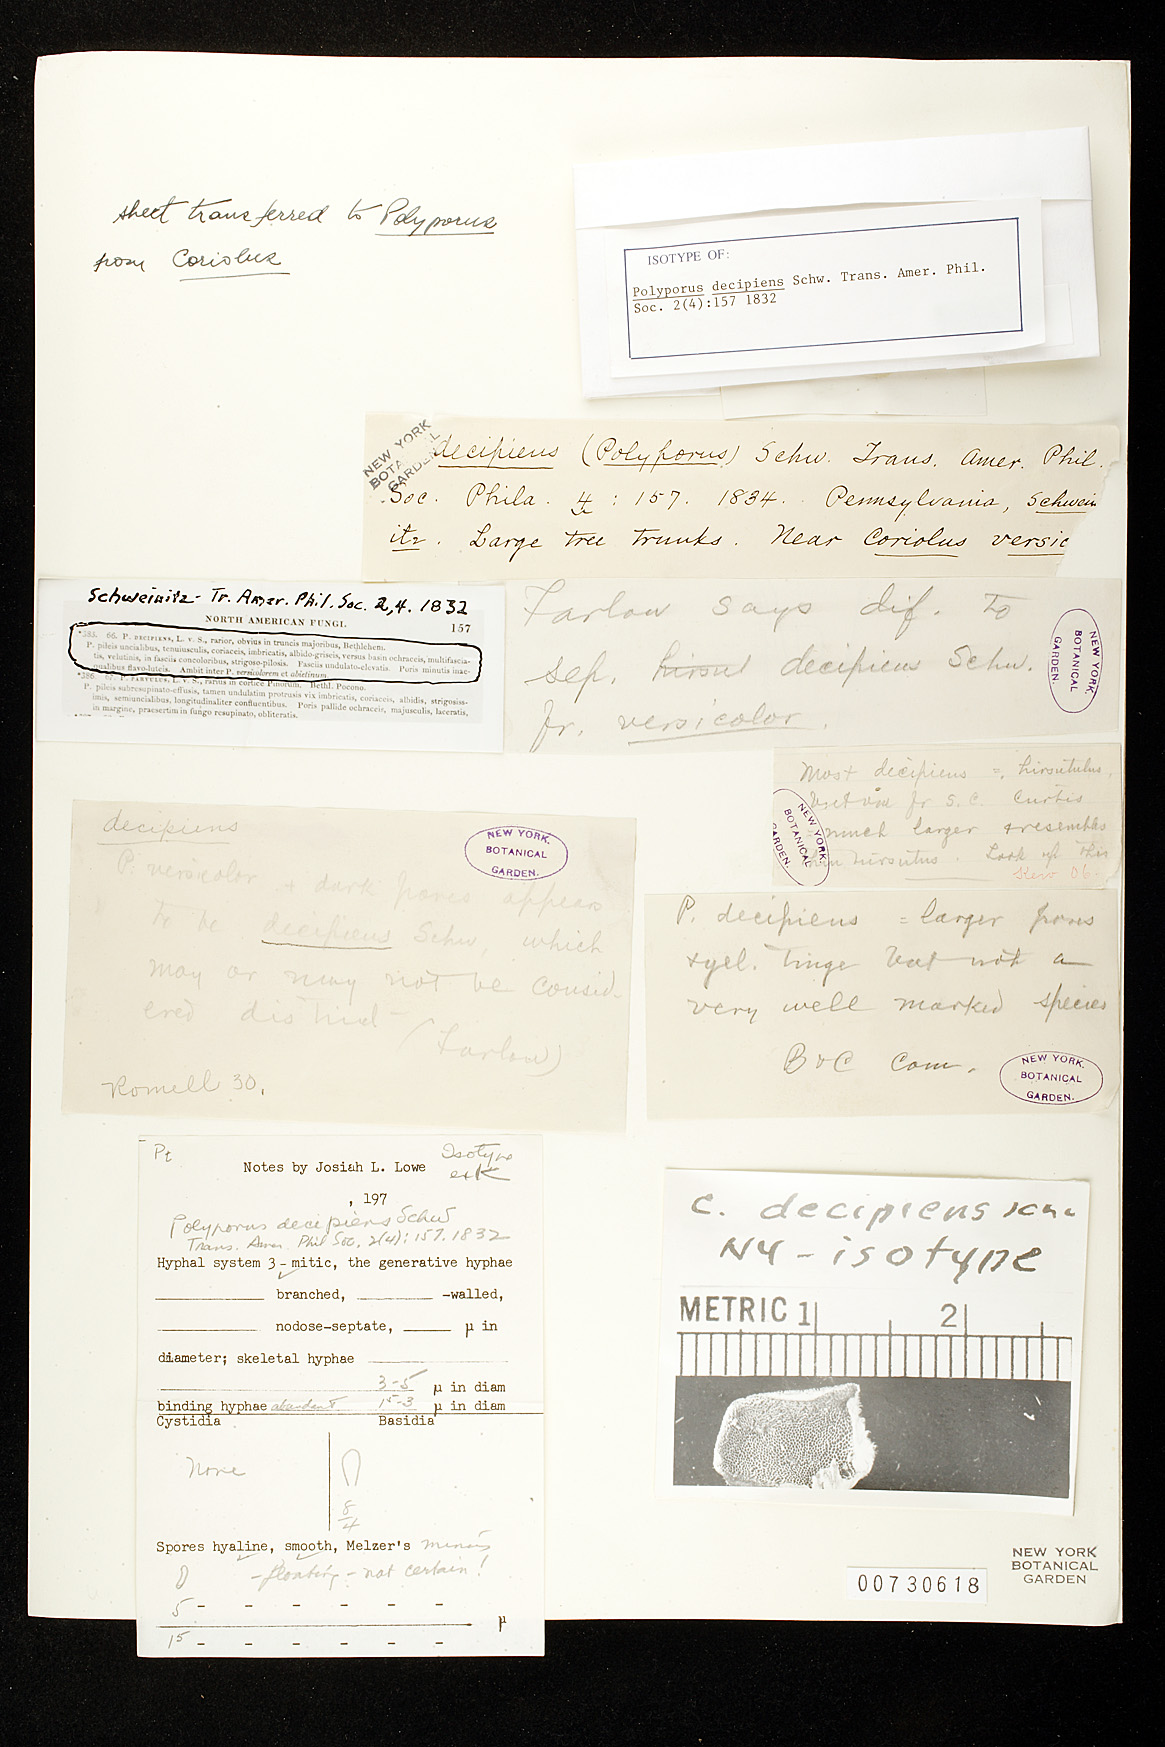 sheet transferred to Polyporus
from Coriolus
ISOTYPE OF:
Polyporus decipiens Schw. Trans. Amer. Phil.
Soc. 2(4):157 1832
NEW YORK
BOTANICAL
GARDEN
decipiens (Polyporus) Schw. Trans. Amer. Phil.
Soc. Phila. 4 : 157. 1834. Pennsylvania, Schwein
itz. Large tree trunks. Near Coriolus versic
Schweinitz - Tr. Amer. Phil. Soc. 2,4. 1832
NORTH AMERICAN FUNGI.
157
*385. 66. P. DECIPIENS, L. v. S., rarior, obvius in truncis majoribus, Bethlehem.
P. pileis uncialibus, tenuiusculis, coriaceis, imbricatis, albido-griseis, versus basin ochraceis, multifascia-
tis, velutinis, in fasciis concoloribus, strigoso-pilosis. Fasciis undulato-elevatis. Poris minutis inae-
qualibus flavo-luteis. Ambit inter P. versicolorem et abietinum.
*386. 67. P. PARVULUS, L. v. S., rarius in cortice Pinorum. Bethl. Pocono.
P. pileis subresupinato-effusis, tamen undulatim protrusis vix imbricatis, coriaceis, albidis, strigosis-
imis, semiuncialibus, longitudinaliter confluentibus. Poris pallide ochraceis, majusculis, laceratis,
in margine, praesertim in fungo resupinato, obliteratis.
Farlow says dif. to
sep. hirsut decipiens Schw.
fr. versicolor.
NEW YORK
BOTANICAL
GARDEN.
Most decipiens = hirsutulus,
but one fr S.C. Curtis
= much larger & resembles
than hirsutus. Look up this
Kew 06.
NEW YORK
BOTANICAL
GARDEN.
decipiens
P. versicolor & dark pores appears
to be decipiens Schw, which
may or may not be consid-
ered distinct -
(Farlow)
Romell 30.
NEW YORK.
BOTANICAL
GARDEN.
P. decipiens = larger pores
& yel. tinge but not a
very well marked species
B & C Com.
NEW YORK.
BOTANICAL
GARDEN.
Pt
Isotype
Notes by Josiah L. Lowe
, 197
Polyporus decipiens Schw
Trans. Amer. Phil Soc. 2(4): 157. 1832
Hyphal system 3-mitic, the generative hyphae
branched, -walled,
nodose-septate, µ in
diameter; skeletal hyphae
3-5 µ in diam
binding hyphae abundant 1.5-3 µ in diam
Cystidia Basidia
None
8
4
Spores hyaline, smooth, Melzer's minus
- floating - not certain!
5 - - - - - -
µ
15 - - - - - -
C. decipiens Schw
NY - isotype
METRIC 1 2
00730618
NEW YORK
BOTANICAL
GARDEN